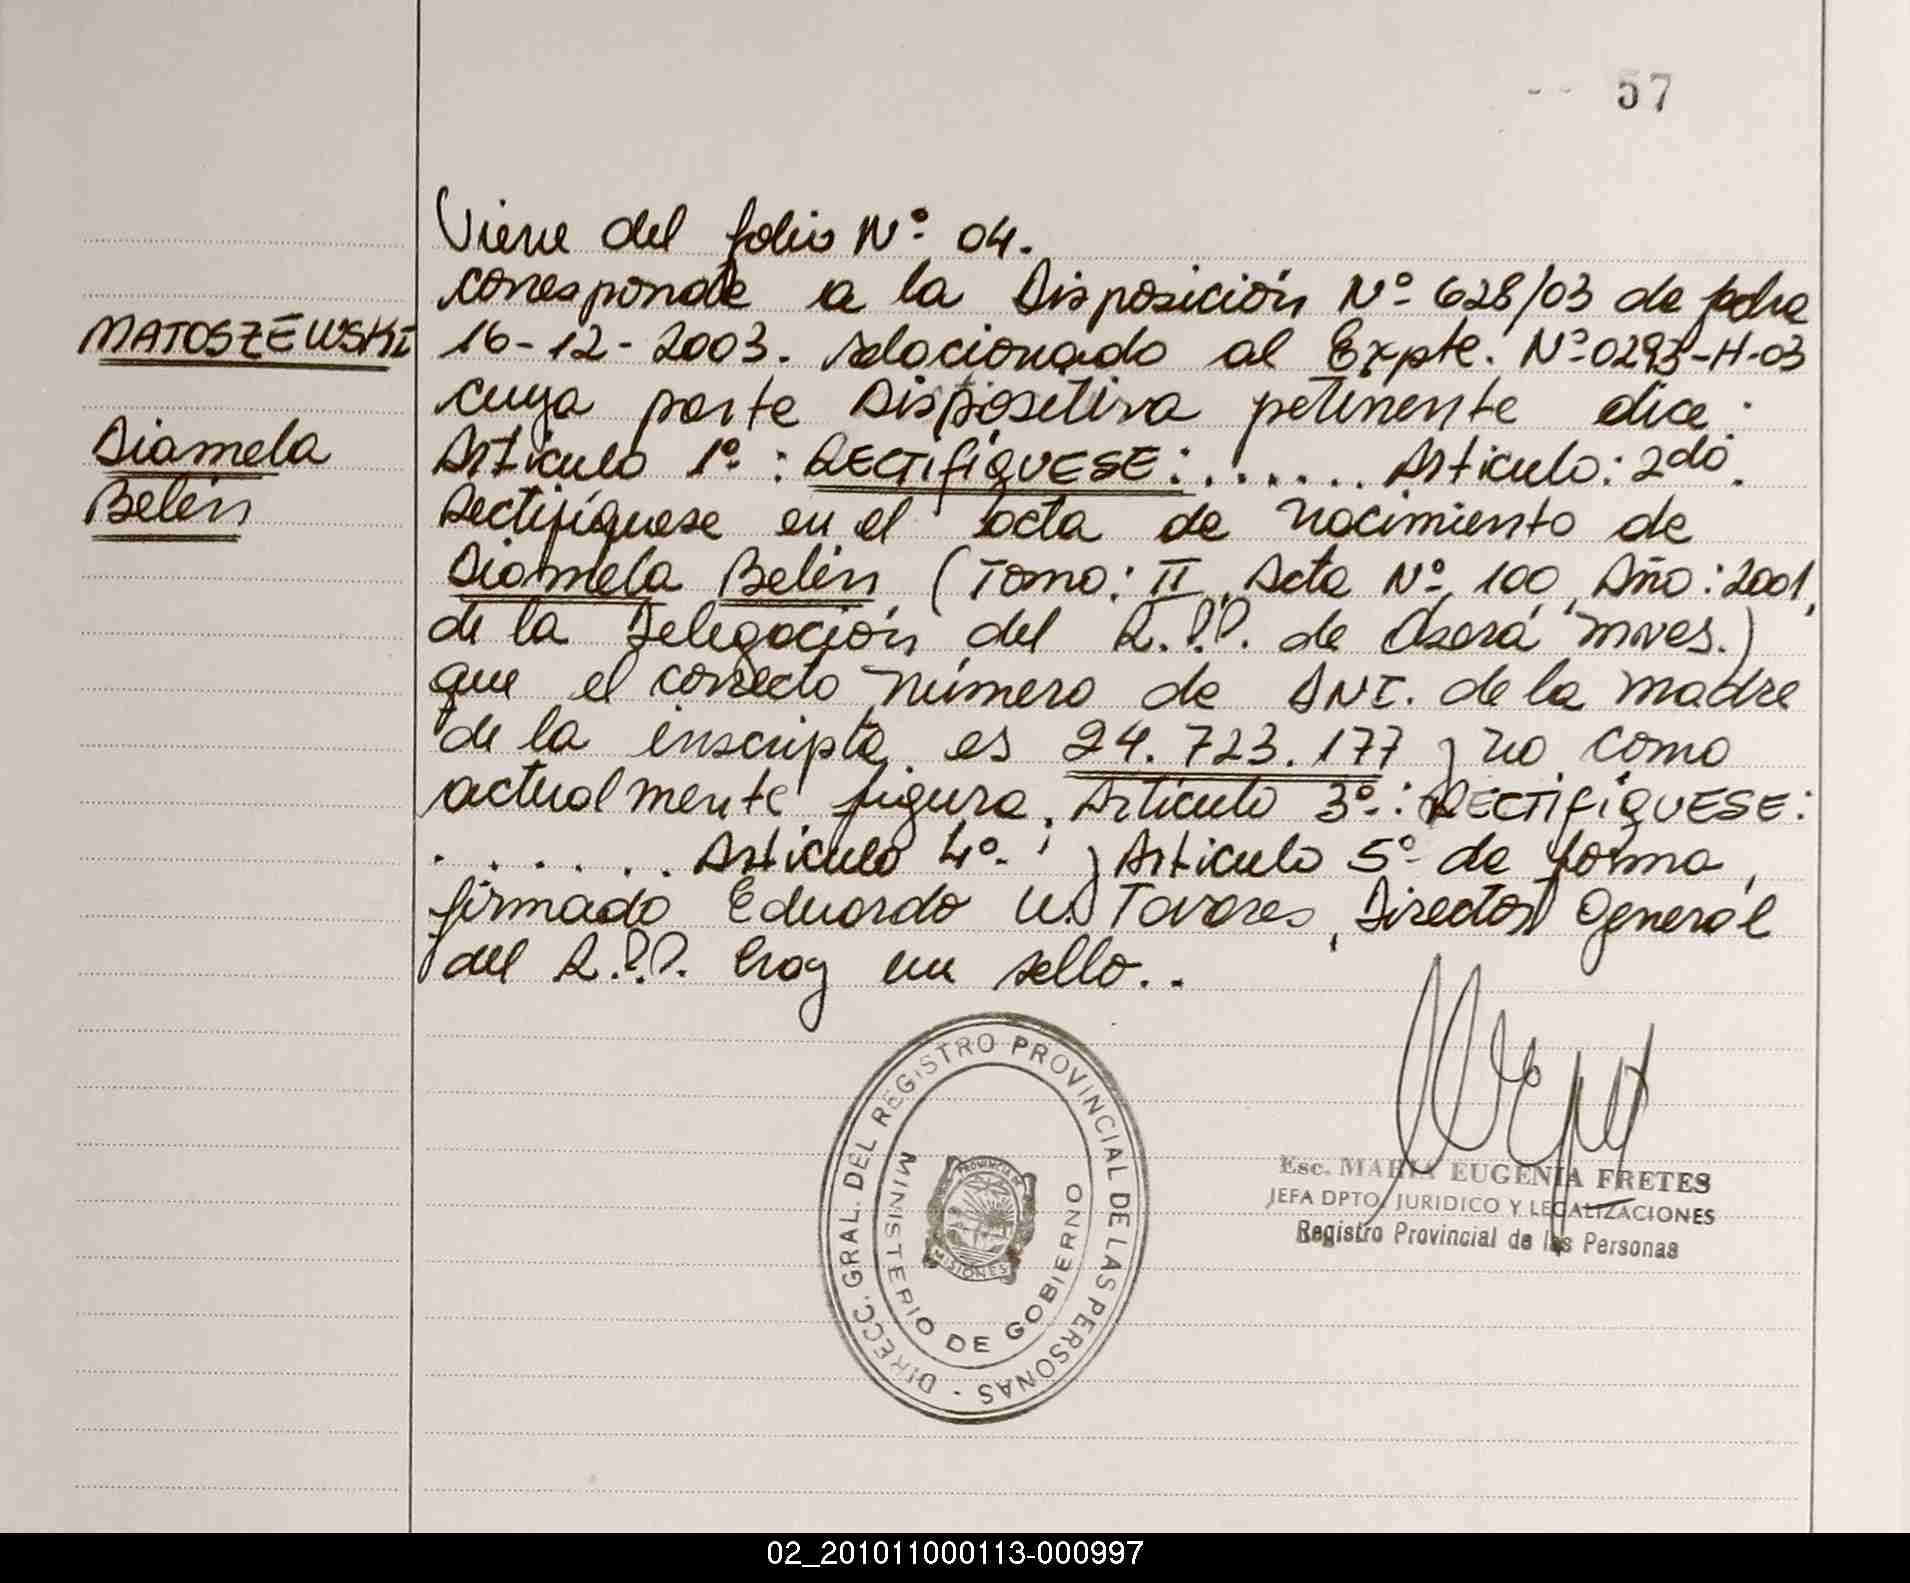 57
Viene del folio Nº 04.
corresponde a la Disposición Nº 628/03 de fecha
MATOSZEWSKI
16-12-2003. relacionado al Expte. Nº 0293-H-03
cuya parte Dispositiva petinente dice:
Diamela
Artículo 1º: RECTIFÍQUESE: ...... Artículo: 2do.
Belén
Rectifíquese en el acta de nacimiento de
Diamela Belén (Tomo: II, Acta Nº 100, Año: 2001,
de la Delegación del R.P.P. de Oberá Mnes.)
que el correcto número de DNI. de la madre
de la inscripta es 24.723.177 y no como
actualmente figura. Artículo 3º: RECTIFÍQUESE:
...... Artículo 4º. y Artículo 5º de forma,
firmado Eduardo W. Tavares, Director General
del R.P.P. hay un sello..
DIRECC. GRAL. DEL REGISTRO PROVINCIAL DE LAS PERSONAS -
MINISTERIO DE GOBIERNO
PROVINCIA DE
MISIONES
Esc. MARIA EUGENIA FRETES
JEFA DPTO. JURIDICO Y LEGALIZACIONES
Registro Provincial de las Personas
02_201011000113-000997